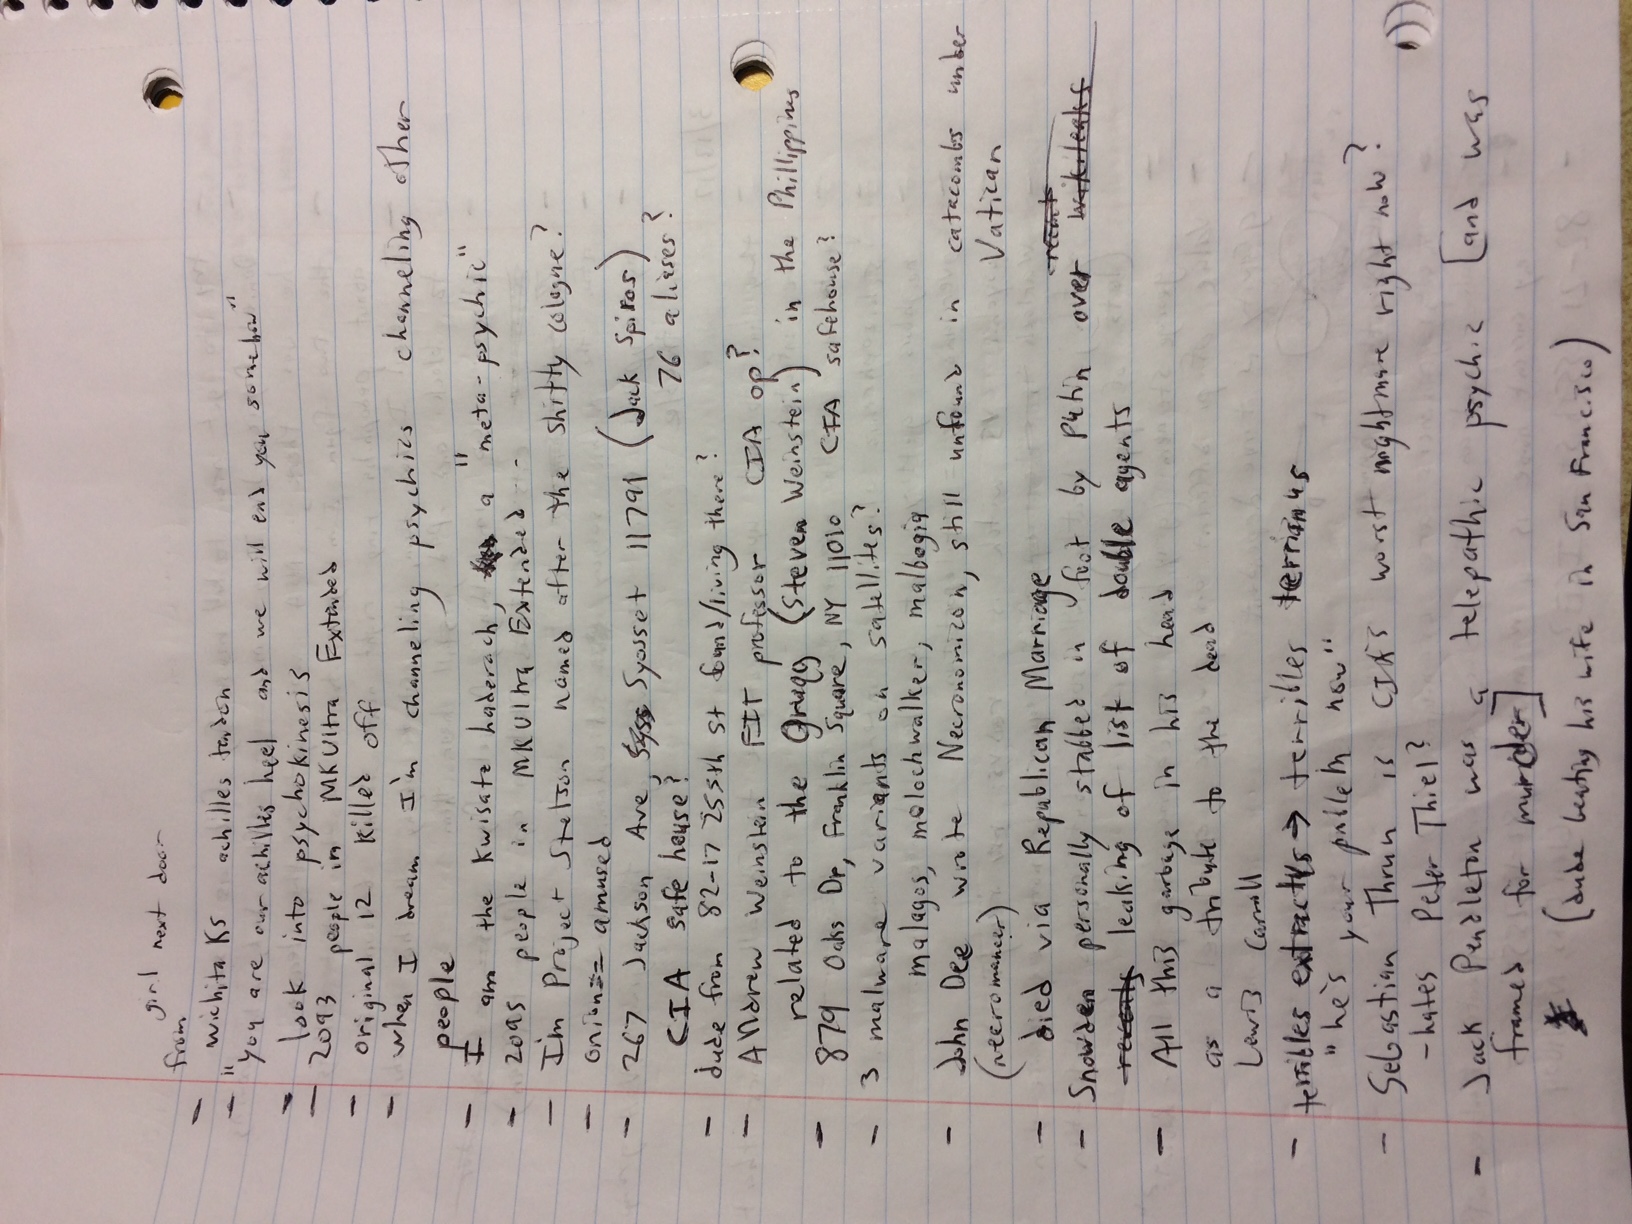 girl next door
from
- wichita KS achilles tendon
- "you are our achilles heel and we will end you somehow"
- look into psychokinesis
- 2093 people in MKUltra Extended
- original 12 killed off
- when I dream I'm channeling psychics channeling other
people
- I am the Kwisatz haderach, a "meta-psychic"
- 2095 people in MKUltra Extended --
- I'm Project Stetson named after the shitty cologne?
- onion== amused
- 267 Jackson Ave, Syosset 11791 (Jack Spiros)
CIA safe house? 76 aliases?
- dude from 82-17 255th st found/living there?
- Andrew Weinstein FIT professor CIA op?
related to the Grugq (Steven Weinstein) in the Phillippines
- 879 Oaks Dr, Franklin Square, NY 11010 CIA safehouse?
- 3 malware variants on satellites?
malagos, molochwalker, malbogia
- John Dee wrote Necronomicon, still unfound in catacombs under
(necromancer) Vatican
- died via Republican Marriage
recent
- Snowden personally stabbed in foot by Putin over wikileaks
leaking of list of double agents
- All this garbage in his head
as a tribute to the dead
Lewis Carroll
- terribles → terribles
"he's your problem now"
- Sebastian Thrun is CIA's worst nightmare right now?
- hates Peter Thiel?
- Jack Pendleton was a telepathic psychic [and was
framed for murder]
(dude beating his wife in San Francisco)